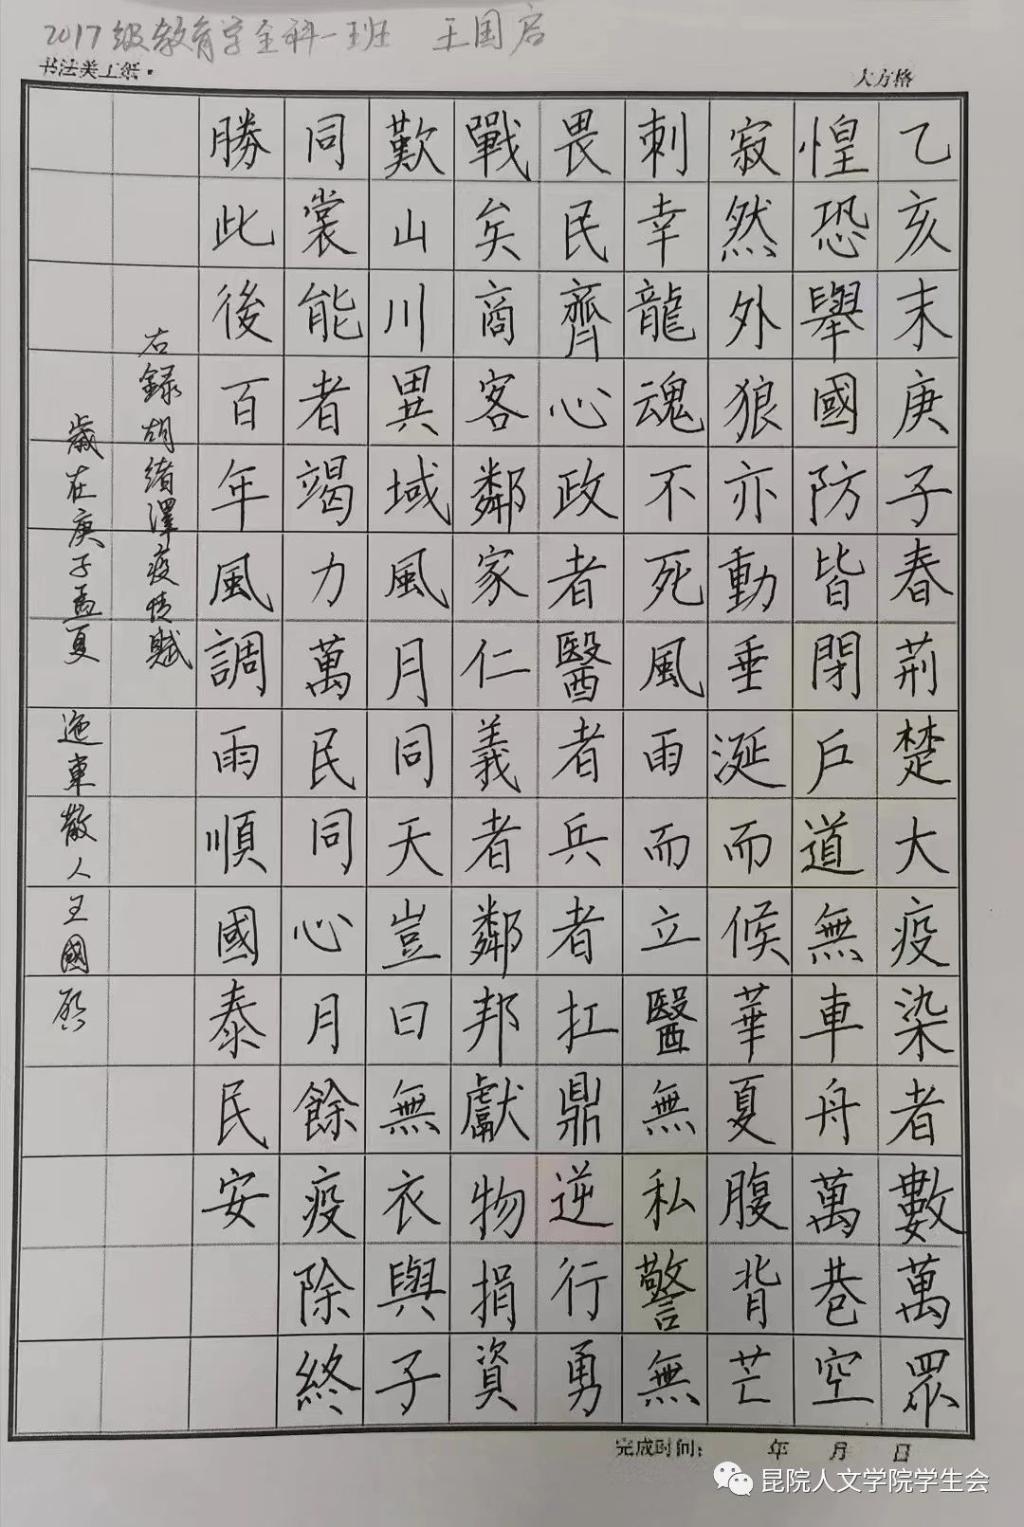 2017级教育学全科一班 王国启
书法美工纸·
大方格
乙亥末庚子春荊楚大疫染者數萬眾
惶恐舉國防皆閉戶道無車舟萬巷空
寂然外狼亦動垂涎而候華夏腹背芒
刺幸龍魂不死風雨而立醫無私警無
畏民齊心政者醫者兵者扛鼎逆行勇
戰矣商客鄰家仁義者鄰邦獻物捐資
歎山川異域風月同天豈曰無衣與子
同裳能者竭力萬民同心月餘疫除終
勝此後百年風調雨順國泰民安
右録胡緒澤疫情賦
歲在庚子孟夏 迤車散人王國啟
完成时间： 年 月 日
昆院人文学院学生会